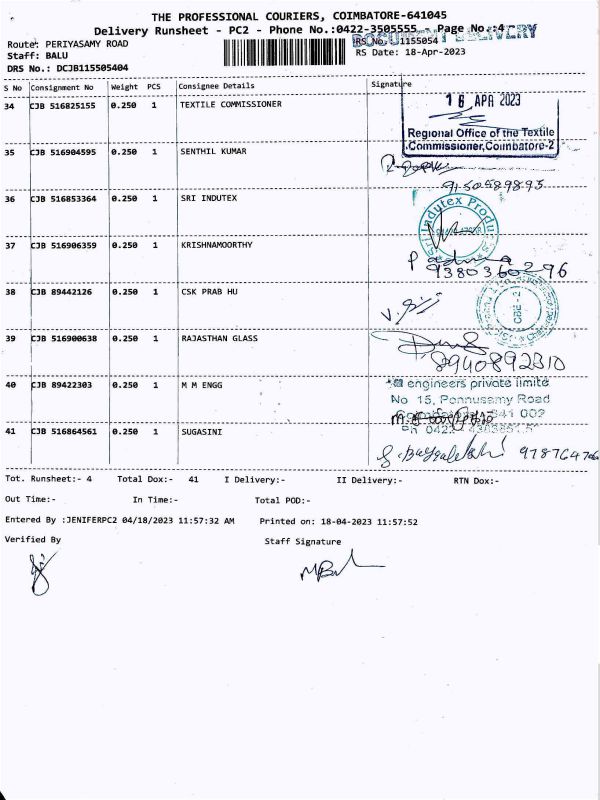 THE PROFESSIONAL COURIERS, COIMBATORE-641045
Delivery Runsheet - PC2 - Phone No.:0422-3505555 Page No.:4
DOCUMENT DELIVERY
Route: PERIYASAMY ROAD
RS No.: 1155054
Staff: BALU
RS Date: 18-Apr-2023
DRS No.: DCJB115505404
S No Consignment No Weight PCS Consignee Details Signature
34 CJB 516825155 0.250 1 TEXTILE COMMISSIONER
18 APR 2023
Regional Office of the Textile
Commissioner, Coimbatore-2
35 CJB 516904595 0.250 1 SENTHIL KUMAR
9150589895
36 CJB 516853364 0.250 1 SRI INDUTEX
Sri Indutex Produ
37 CJB 516906359 0.250 1 KRISHNAMOORTHY
P
9380360296
38 CJB 89442126 0.250 1 CSK PRAB HU
CBE-2
39 CJB 516900638 0.250 1 RAJASTHAN GLASS
8940892310
40 CJB 89422303 0.250 1 M M ENGG
engineers private limite
No 15, Ponnusamy Road
641 002
Ph 0422
41 CJB 516864561 0.250 1 SUGASINI
Tot. Runsheet:- 4 Total Dox:- 41 I Delivery:- II Delivery:- RTN Dox:-
Out Time:- In Time:- Total POD:-
Entered By :JENIFERPC2 04/18/2023 11:57:32 AM Printed on: 18-04-2023 11:57:52
Verified By Staff Signature